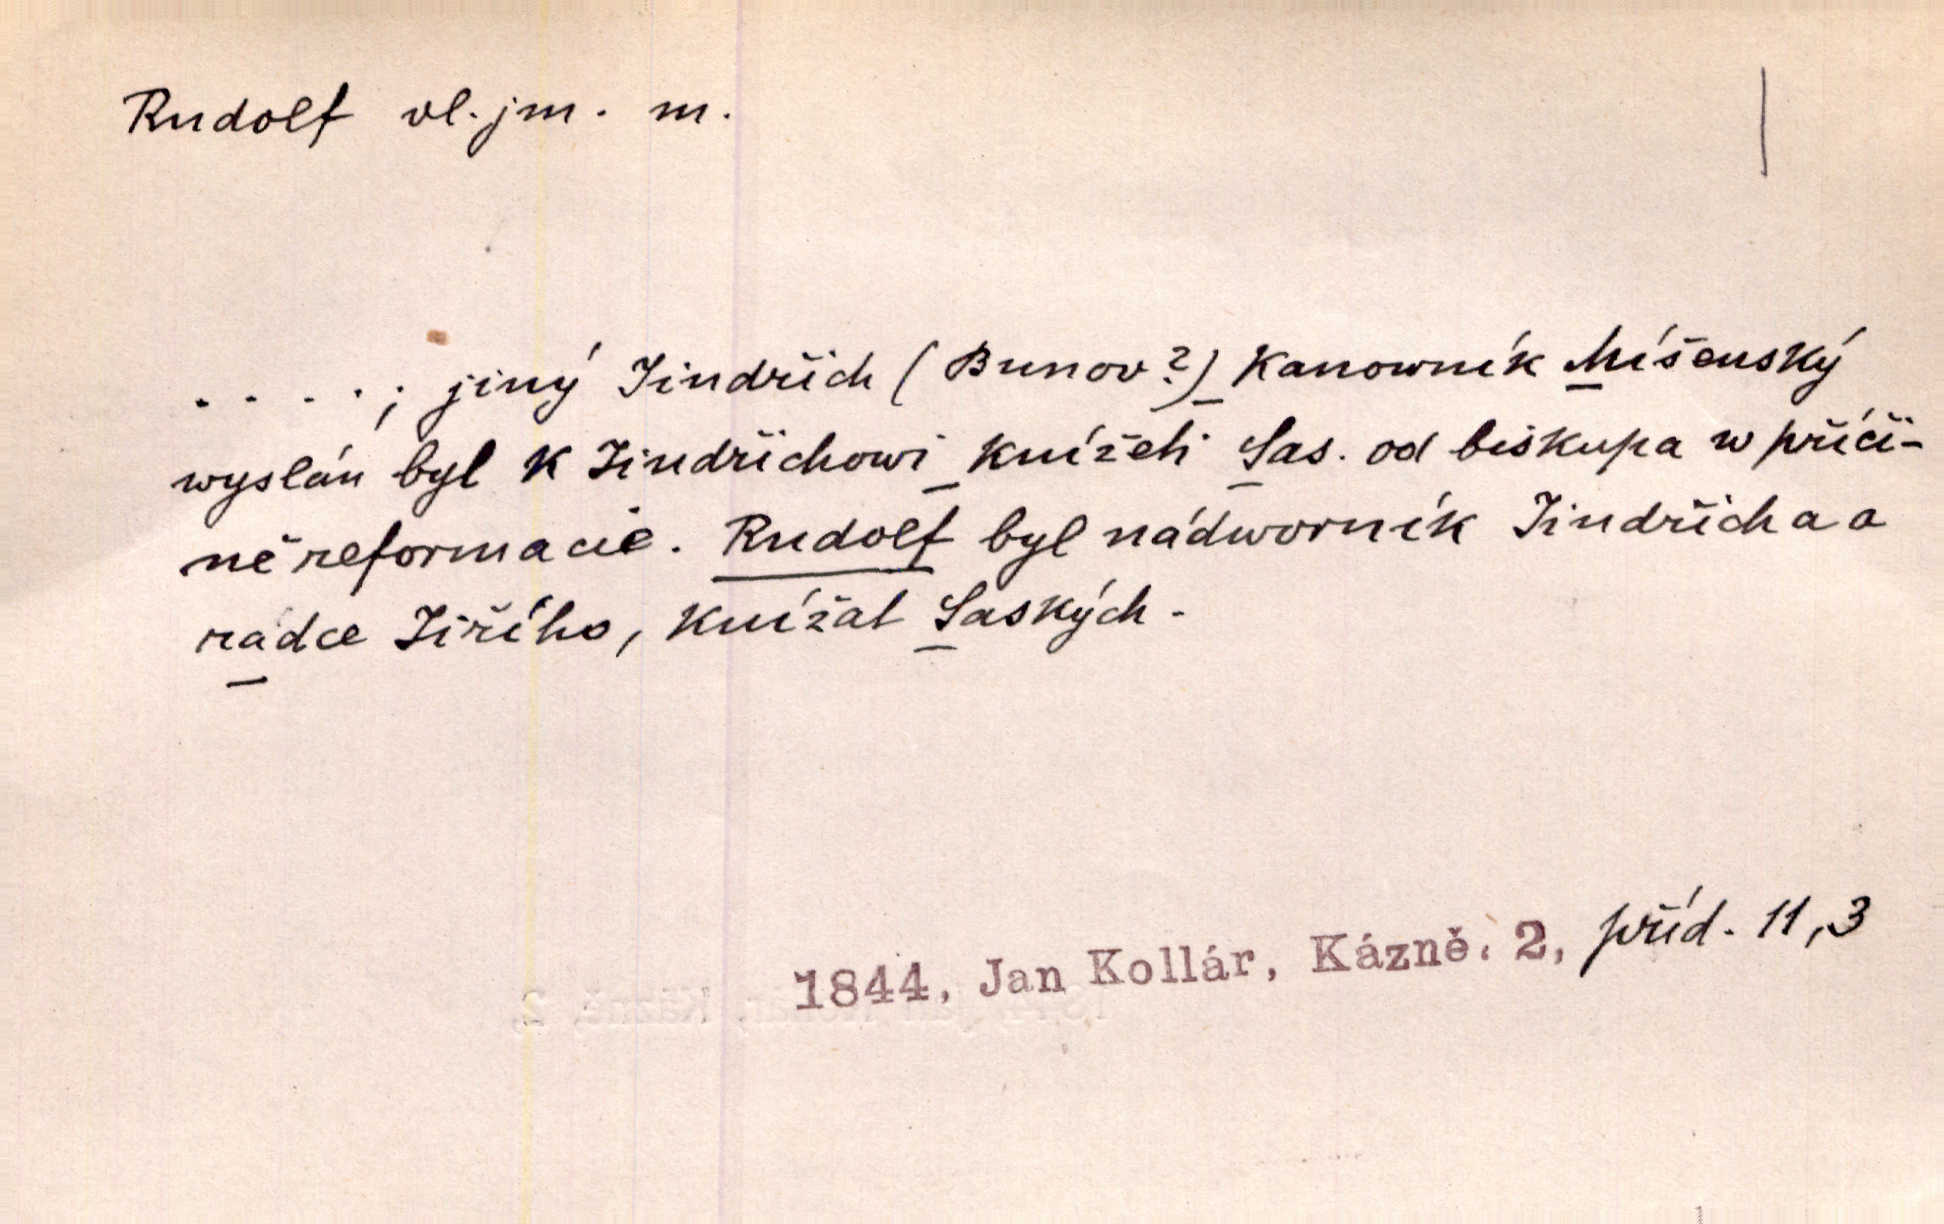 Rudolf vl. jm. m.
. . . . ; jiný Jindřich (Bunov?) Kanowník Míšenský
wyslán byl k Jindřichowi knížeti Sas. od biskupa w příči-
ně reformacie. Rudolf byl nádworník Jindřicha a
radce Jiřího, knížat Saských.
1844, Jan Kollár, Kázně. 2, příd. 11,3